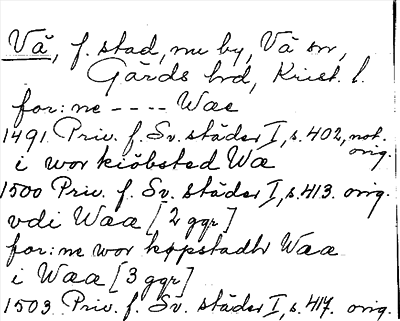 Vä, f. stad, nu by, Vä sn,
Gärds hrd, Krist. l.
for:ne ---- Wae
1491 Priv. f. Sv. städer I, s. 402, not. orig.
i wor kiöbsted Wæ
1500 Priv. f. Sv. städer I, s. 413. orig.
vdi Waa [2 ggr]
for:ne wor køpstadh Waa
i Waa [3 ggr]
1503 Priv. f. Sv. städer I, s. 417. orig.